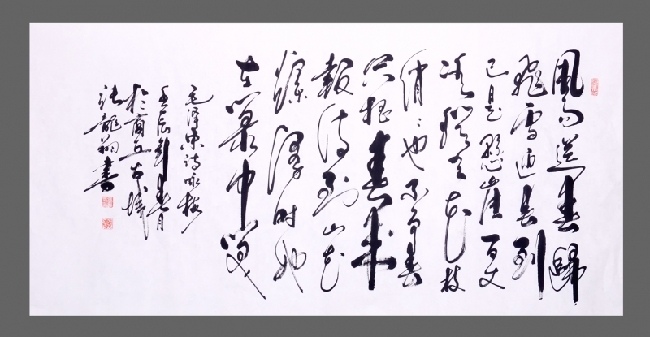 風雨送春歸
飛雪迎春到
已是懸崖百丈
冰猶有花枝
俏〻也不争春
只把春來
報待到山花
爛漫時她
在叢中笑
毛澤東詩咏梅
壬辰春月
於商丘古城
龍翔書